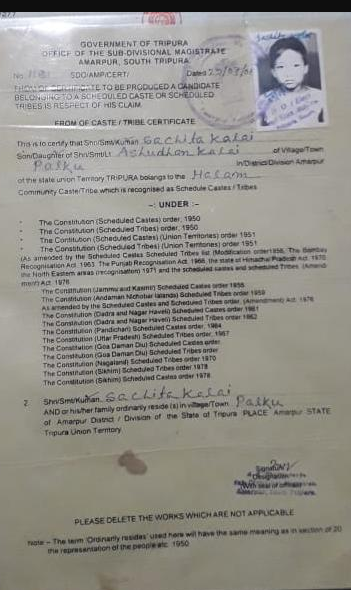 GOVERNMENT OF TRIPURA
OFFICE OF THE SUB-DIVISIONAL MAGISTRATE
AMARPUR, SOUTH TRIPURA.
No. SDO/AMP/CERT/ Dated
FROM OF CERTIFICATE TO BE PRODUCED A CANDIDATE
BELONGING TO A SCHEDULED CASTE OR SCHEDULED
TRIBES IS RESPECT OF HIS CLAIM.
FROM OF CASTE / TRIBE CERTIFICATE
This is to certify that Shri/Smt/Kumari Sachita Kalai
Son/Daughter of Shri/Smt/Lt Ashudhan Kalai of Village/Town
Palku in/District/Division Amarpur
of the state union Territory TRIPURA belongs to the Halam
Community Caste/Tribe which is recognised as Schedule Castes / Tribes
-: UNDER :-
The Constitution (Scheduled Castes) order, 1950
The Constitution (Scheduled Tribes) order, 1950
The Constitution (Scheduled Castes) (Union Territories) order 1951
The Constitution (Scheduled Tribes) (Union Territories) order 1951
(As amended by the Scheduled Castes Scheduled Tribes list (Modification order1956, The Bombay
Recognisation Act, 1960, The Punjab Recognisation Act, 1966, the state of Himachal Pradesh Act, 1970
the North Eastern areas (recognisation) 1971 and the scheduled castes and scheduled Tribes (Amend-
ment) Act, 1976
The Constitution (Jammu and Kasmir) Scheduled Castes order 1956
The Constitution (Andaman Nichobar Islands) Scheduled Tribes order 1959
As amended by the Scheduled Castes and Scheduled Tribes order, (Amendment) Act, 1976
The Constitution (Dadra and Nagar Haveli) Scheduled Castes order 1962
The Constitution (Dadra and Nagar Haveli) Scheduled Tribes order 1962
The Constitution (Pandichari) Scheduled Castes order, 1964
The Constitution (Uttar Pradesh) Scheduled Tribes order, 1967
The Constitution (Goa Daman Diu) Scheduled Castes order.
The Constitution (Goa Daman Diu) Scheduled Tribes order
The Constitution (Nagaland) Scheduled Tribes order 1970
The Constitution (Sikhim) Scheduled Tribes order 1978
The Constitution (Sikhim) Scheduled Castes order 1978
2 Shri/Smt/Kumari Sachita Kalai
AND or/his/her family ordinarily reside (s) in village/Town Palku
of Amarpur District / Division of the State of Tripura PLACE Amarpur STATE
Tripura Union Territory.
PLEASE DELETE THE WORKS WHICH ARE NOT APPLICABLE
Note – The term 'Ordinarily resides' used here will have the same meaning as in section of 20
the representation of the people etc. 1950